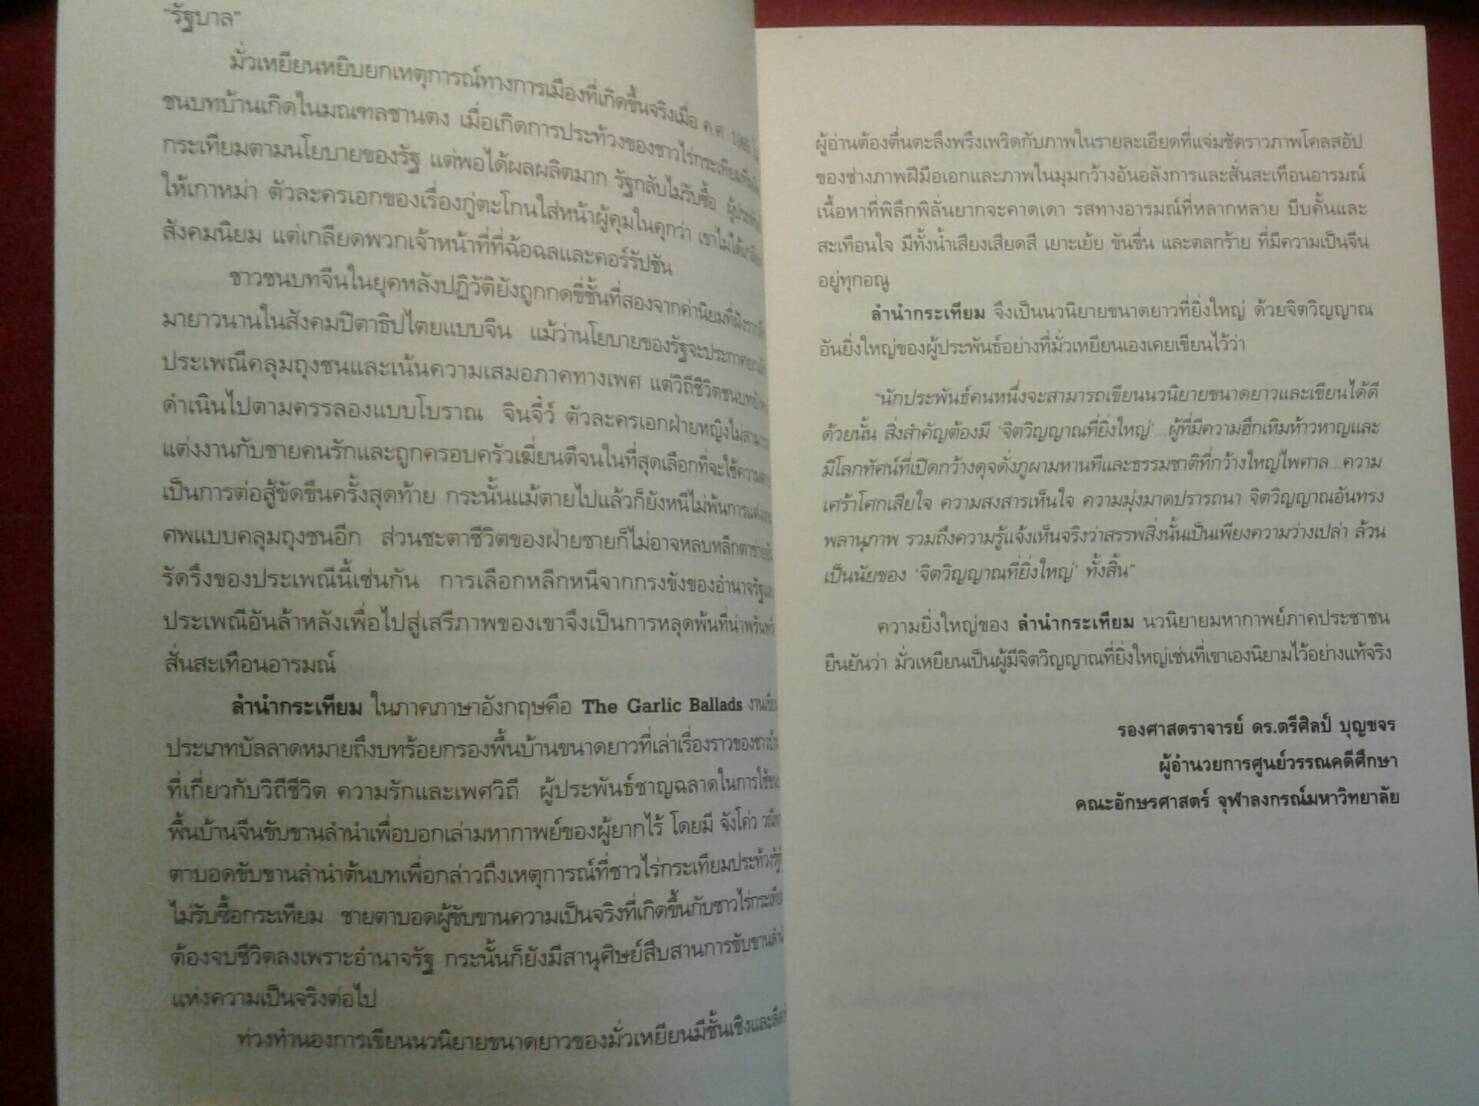 "รัฐบาล"
มั่วเหยียนหยิบยกเหตุการณ์ทางการเมืองที่เกิดขึ้นจริงเมื่อ ค.ศ.
ชนบทบ้านเกิดในมณฑลชานตง เมื่อเกิดการประท้วงของชาวไร่กระเทียม
กระเทียมตามนโยบายของรัฐ แต่พอได้ผลผลิตมาก รัฐกลับไม่รับซื้อ
ให้เกาหม่า ตัวละครเอกของเรื่องกู่ตะโกนใส่หน้าผู้คุมในคุกว่า เขาไม่ได้
สังคมนิยม แต่เกลียดพวกเจ้าหน้าที่ที่ฉ้อฉลและคอร์รัปชัน
ชาวชนบทจีนในยุคหลังปฏิวัติยังถูกกดขี่ชั้นที่สองจากค่านิยมที่
มายาวนานในสังคมปิตาธิปไตยแบบจีน แม้ว่านโยบายของรัฐจะประกาศ
ประเพณีคลุมถุงชนและเน้นความเสมอภาคทางเพศ แต่วิถีชีวิตชนบท
ดำเนินไปตามครรลองแบบโบราณ จินจี๋ว์ ตัวละครเอกฝ่ายหญิงไม่
แต่งงานกับชายคนรักและถูกครอบครัวเฆี่ยนตีจนในที่สุดเลือกที่จะใช้
เป็นการต่อสู้ขัดขืนครั้งสุดท้าย กระนั้นแม้ตายไปแล้วก็ยังหนีไม่พ้นการ
ศพแบบคลุมถุงชนอีก ส่วนชะตาชีวิตของฝ่ายชายก็ไม่อาจหลบหลีก
รัดรึงของประเพณีนี้เช่นกัน การเลือกหลีกหนีจากกรงขังของอำนาจรัฐ
ประเพณีอันล้าหลังเพื่อไปสู่เสรีภาพของเขาจึงเป็นการหลุดพ้นที่
สั่นสะเทือนอารมณ์
ลำนำกระเทียม ในภาคภาษาอังกฤษคือ The Garlic Ballads
ประเภทบัลลาดหมายถึงบทร้อยกรองพื้นบ้านขนาดยาวที่เล่าเรื่องราวของ
ที่เกี่ยวกับวิถีชีวิต ความรักและเพศวิถี ผู้ประพันธ์ชาญฉลาดในการใช้
พื้นบ้านจีนขับขานลำนำเพื่อบอกเล่ามหากาพย์ของผู้ยากไร้ โดยมี จังโค่ว
ตาบอดขับขานลำนำต้นบทเพื่อกล่าวถึงเหตุการณ์ที่ชาวไร่กระเทียมประท้วง
ไม่รับซื้อกระเทียม ชายตาบอดผู้ขับขานความเป็นจริงที่เกิดขึ้นกับชาวไร่
ต้องจบชีวิตลงเพราะอำนาจรัฐ กระนั้นก็ยังมีสานุศิษย์สืบสานการขับขาน
แห่งความเป็นจริงต่อไป
ท่วงทำนองการเขียนนวนิยายขนาดยาวของมั่วเหยียนมีชั้นเชิงและ
ผู้อ่านต้องตื่นตะลึงพรึงเพริดกับภาพในรายละเอียดที่แจ่มชัดราวภาพโคลสอัป
ของช่างภาพฝีมือเอกและภาพในมุมกว้างอันอลังการและสั่นสะเทือนอารมณ์
เนื้อหาที่พิลึกพิลั่นยากจะคาดเดา รสทางอารมณ์ที่หลากหลาย บีบคั้นและ
สะเทือนใจ มีทั้งน้ำเสียงเสียดสี เยาะเย้ย ขันขื่น และตลกร้าย ที่มีความเป็นจีน
อยู่ทุกอณู
ลำนำกระเทียม จึงเป็นนวนิยายขนาดยาวที่ยิ่งใหญ่ ด้วยจิตวิญญาณ
อันยิ่งใหญ่ของผู้ประพันธ์อย่างที่มั่วเหยียนเองเคยเขียนไว้ว่า
"นักประพันธ์คนหนึ่งจะสามารถเขียนนวนิยายขนาดยาวและเขียนได้ดี
ด้วยนั้น สิ่งสำคัญต้องมี 'จิตวิญญาณที่ยิ่งใหญ่'...ผู้ที่มีความฮึกเหิมห้าวหาญและ
มีโลกทัศน์ที่เปิดกว้างดุจดั่งภูผามหานทีและธรรมชาติที่กว้างใหญ่ไพศาล...ความ
เศร้าโศกเสียใจ ความสงสารเห็นใจ ความมุ่งมาดปรารถนา จิตวิญญาณอันทรง
พลานุภาพ รวมถึงความรู้แจ้งเห็นจริงว่าสรรพสิ่งนั้นเป็นเพียงความว่างเปล่า ล้วน
เป็นนัยของ 'จิตวิญญาณที่ยิ่งใหญ่' ทั้งสิ้น"
ความยิ่งใหญ่ของ ลำนำกระเทียม นวนิยายมหากาพย์ภาคประชาชน
ยืนยันว่า มั่วเหยียนเป็นผู้มีจิตวิญญาณที่ยิ่งใหญ่เช่นที่เขาเองนิยามไว้อย่างแท้จริง
รองศาสตราจารย์ ดร.ตรีศิลป์ บุญขจร
ผู้อำนวยการศูนย์วรรณคดีศึกษา
คณะอักษรศาสตร์ จุฬาลงกรณ์มหาวิทยาลัย